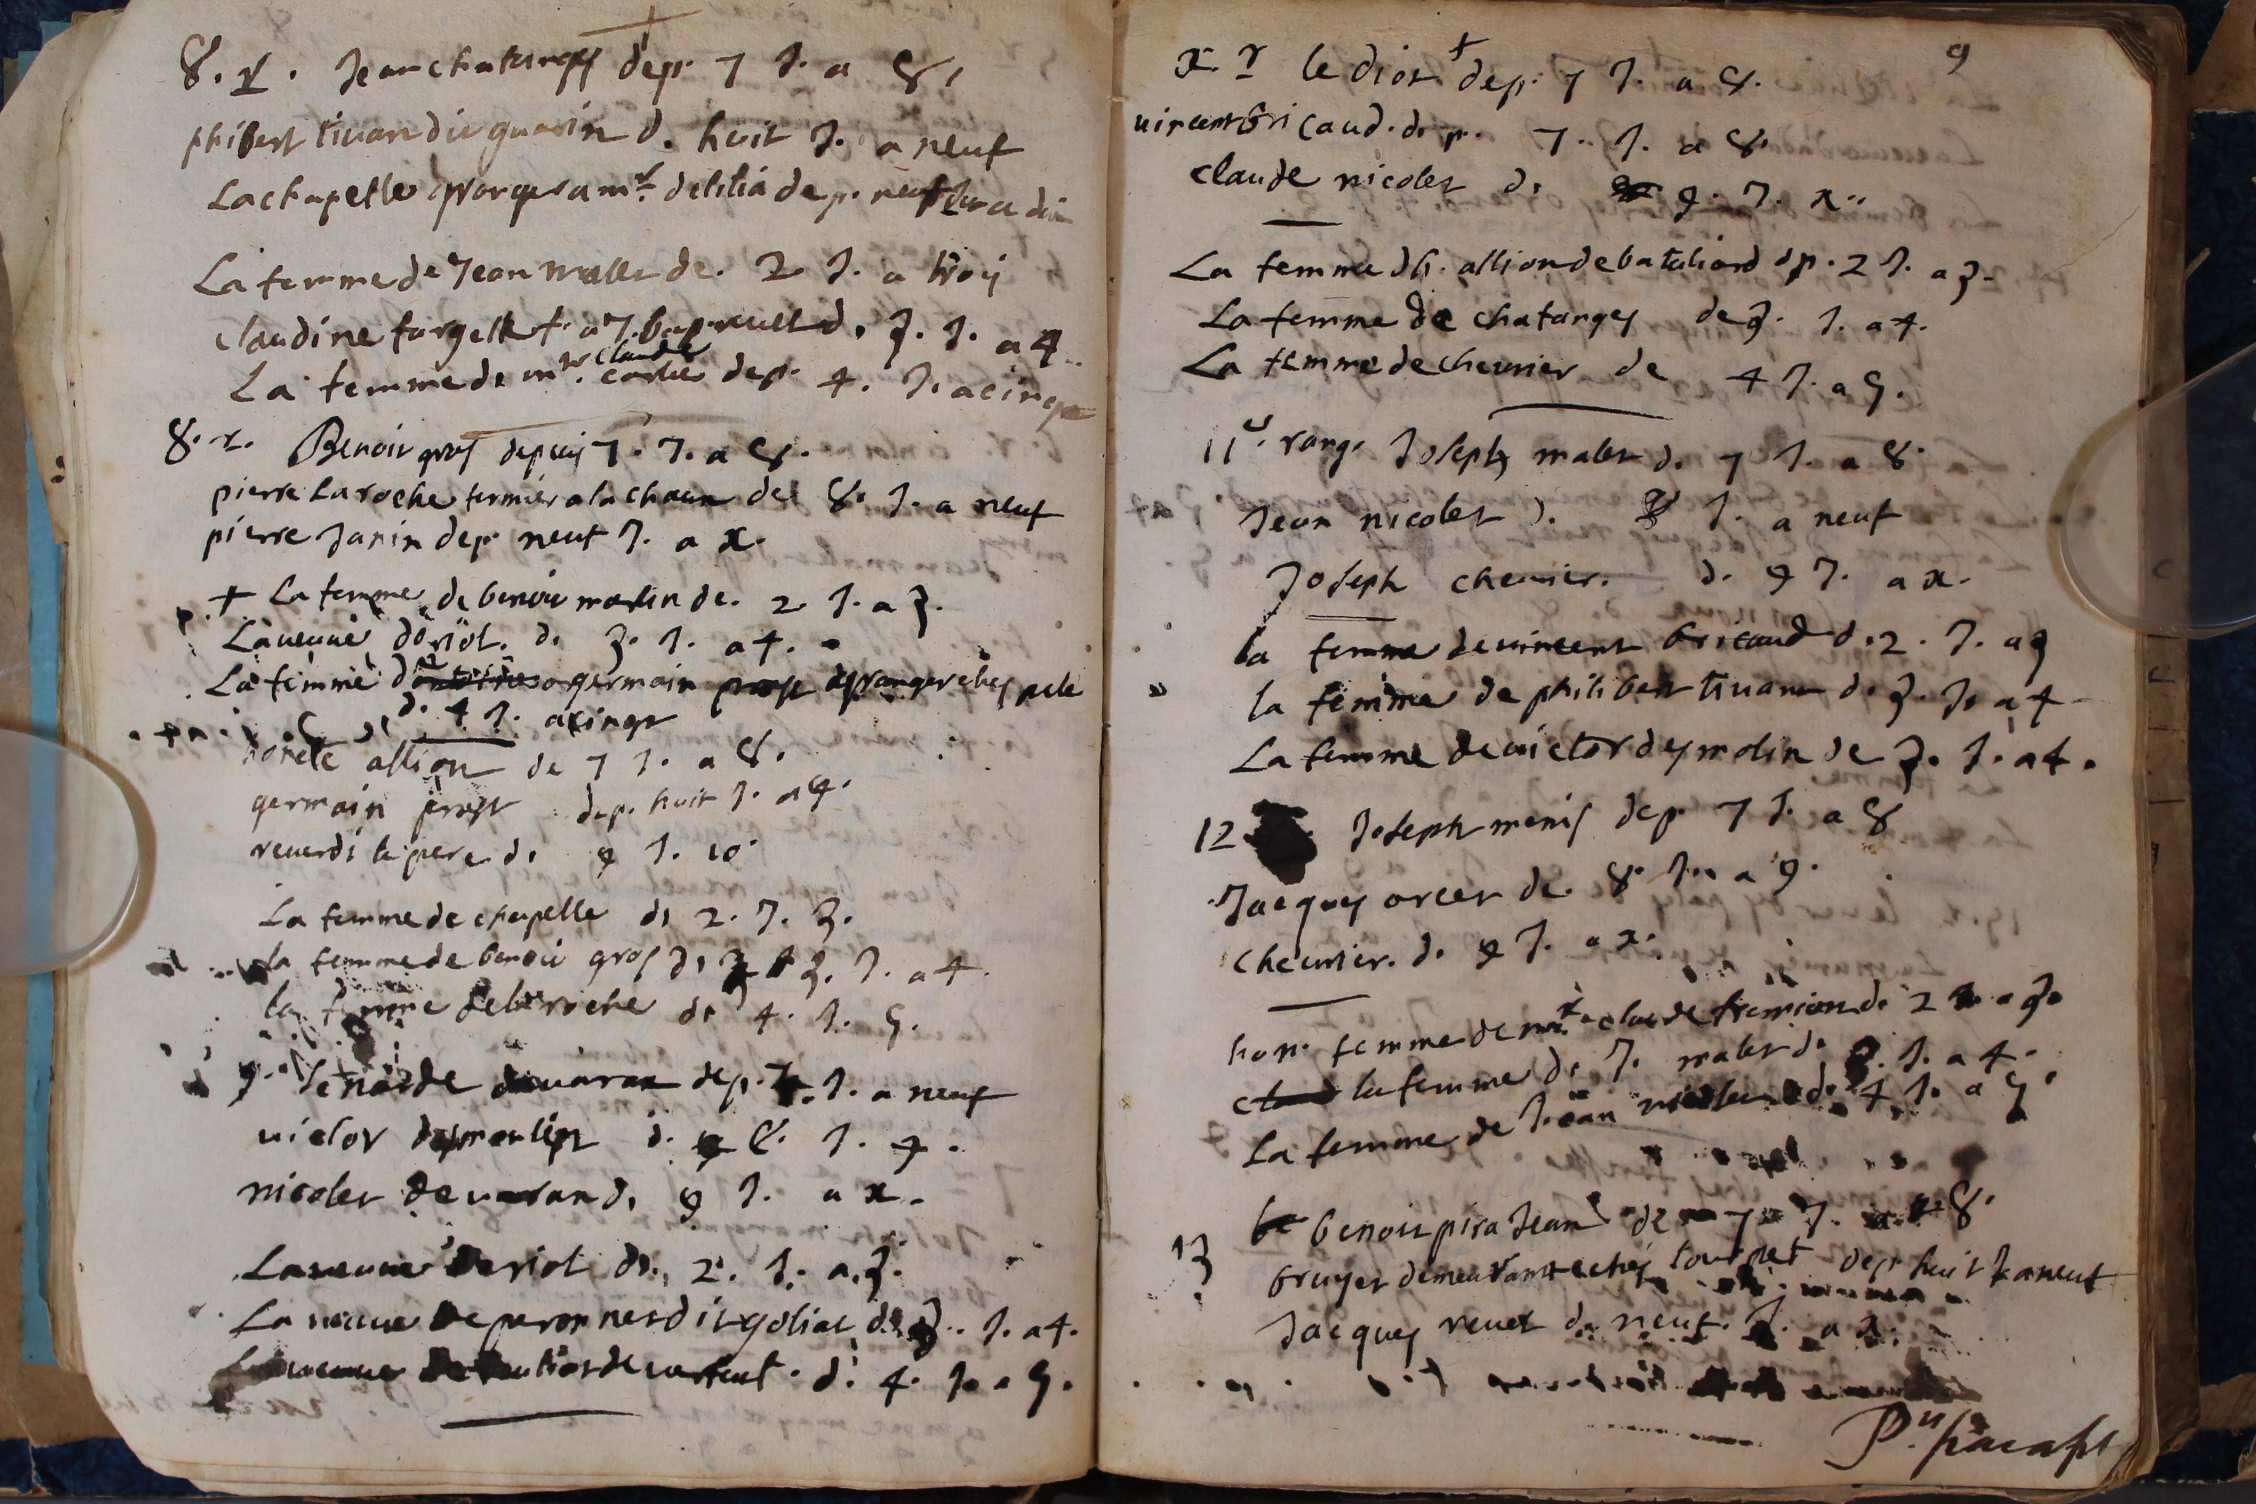 8. r. Jean chatanges dep. 7 J. a 8.
phibert tivan dit guerin d. huit J. a neuf
La chapelle a mr. de dep. neuf J. a dix
La femme de Jean malet de. 2 J. a troy
claudine fargette f. a J. bap. d. 3. J. a 4
La femme de mr. claude dep. 4. J. a cinq
8. r. Benoit gros depuis 7. J. a 8.
pierre Laroche fermier a la chaux de 8. J. a neuf
pierre Janin dep. neuf J. a x.
+ La femme de benoit de. 2 J. a 3.
La veuve doriol. d. 3. J. a 4.
La femme germain chez
d. 4 J. a cinq
honete allion de 7 J. a 8.
germain prost dep. huit J. a 9.
reverdi le pere d. 9 J. 10.
La femme de chapelle d. 2. J. 3.
la femme de benoit gros d. 3. J. a 4.
la femme de laroche d. 4. J. 5.
9. dep. J. a neuf
victor d. 8. J. 9.
nicolet devaran d. 9 J. a x.
La veuve deriol d. 2. J. a 3.
La veuve de dit goliat d. 3. J. a 4.
La veuve d. 4. J. a 5.
9
x. r le diot + dep. 7 J. a 8.
vincent bricaud. dep. 7. J. a 8.
claude nicolet d. 9. J. x..
La femme d h. allion de dep. 2 J. a 3.
La femme de chatanges de 3. J. a 4.
La femme de chevrier de 4 J. a 5.
11e. rang. Joseph malet d. 7 J. a 8.
Jean nicolet d. J. a neuf
Joseph chevrier. d. 9 J. a x.
la femme de vincent bricaud d. 2. J. a 3
la femme de philibert tivan d. 3. J. a 4
La femme de victor desmolin de 3. J. a 4.
12 Joseph menis dep. 7 J. a 8
Jacques orcet de. 8. J. a 9.
chevrier. d. 9 J. a x.
hon. femme de claude d. 2 a 3.
la femme d. J. malet d. J. a 4.
La femme de Jean nicolet d. 4 J. a 5.
benoit de 7 J. a 8.
13 bruyer demeurant chez dep. huit J. a neuf
Jacques revet d. neuf. J. a x.